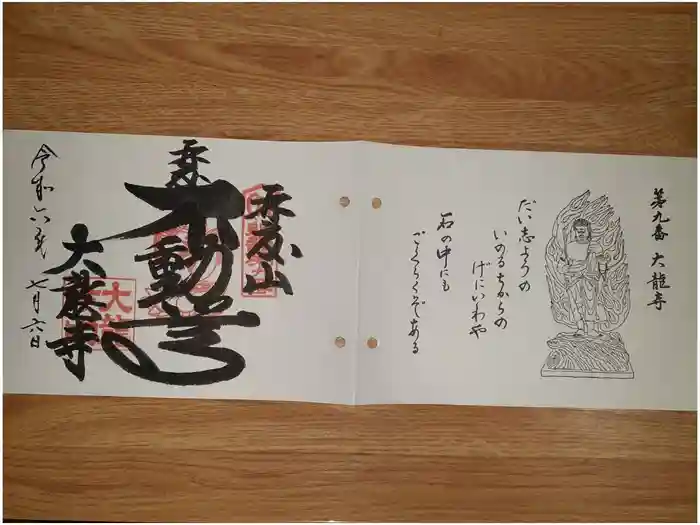 第九番 大龍寺
だい志ょうの
いのるちからの
げにいわや
石の中にも
ごくらくぞある
奉
不動尊
大龍寺
令和六年
七月六日